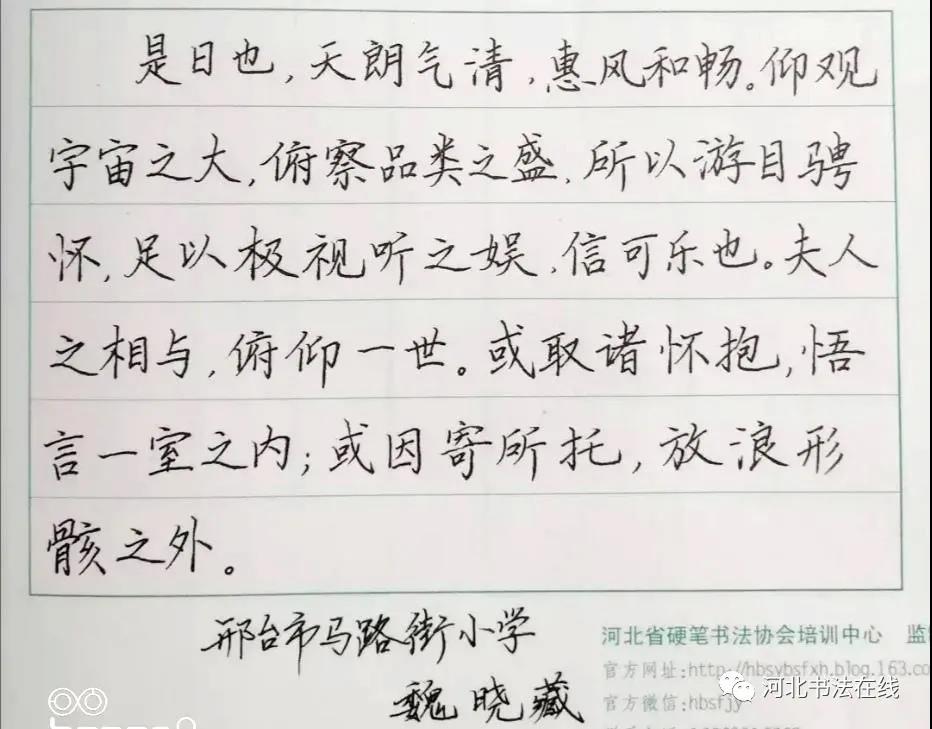 是日也，天朗气清，惠风和畅。仰观
宇宙之大，俯察品类之盛，所以游目骋
怀，足以极视听之娱，信可乐也。夫人
之相与，俯仰一世。或取诸怀抱，悟
言一室之内；或因寄所托，放浪形
骸之外。
邢台市马路街小学
魏晓藏
河北省硬笔书法协会培训中心 监
官方网址:http://hbsybsfxh.blog.163.co
官方微信:hbsfjy
河北书法在线